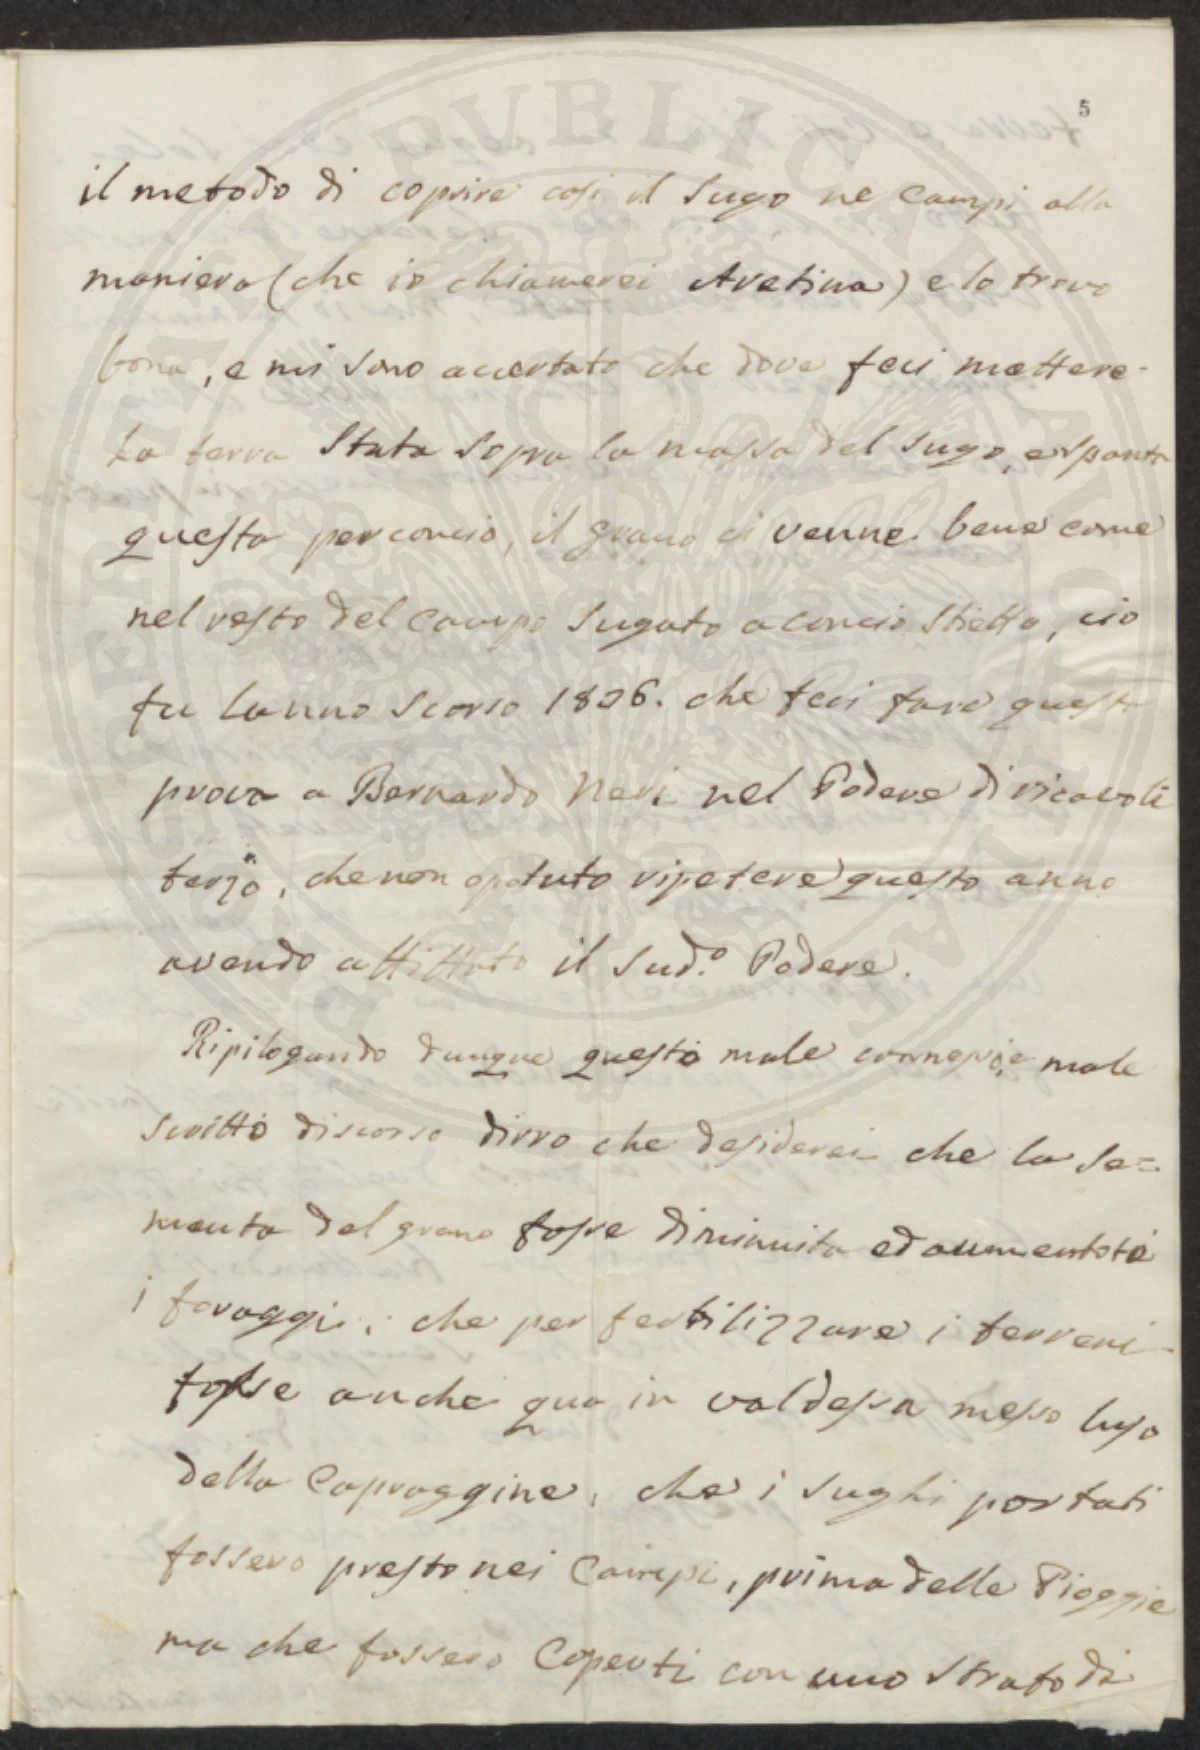 5
il metodo di coprire così il Sugo ne Campi alla
maniera (che io chiamerei Aretina) e lo trovo
bono, e mi sono accertato che dove feci mettere
La terra Stata Sopra la massa del Sugo, e spanta
questa per concio, il grano ci venne bene come
nel resto del Campo Sugato a concio Stietto, cio
fu lanno Scorso 1826. che feci fare questa
prova a Bernardo Neri nel Podere di ricavoli
terzo, che non o potuto ripetere questo anno
avendo affittato il Sud.º Podere.
Ripilogando dunque questo male connesso, e male
Scritto discorso dirro che desiderei che la Se=
menta del grano fosse diminuita ed aumentati
i foraggi, che per fertilizzare i terreni
fosse anche qua in valdessa messo luso
della Capraggine, che i Sughi portati
fossero presto nei Campi, prima delle Pioggie
ma che fossero Coperti con uno Strato di
PUBLICAE